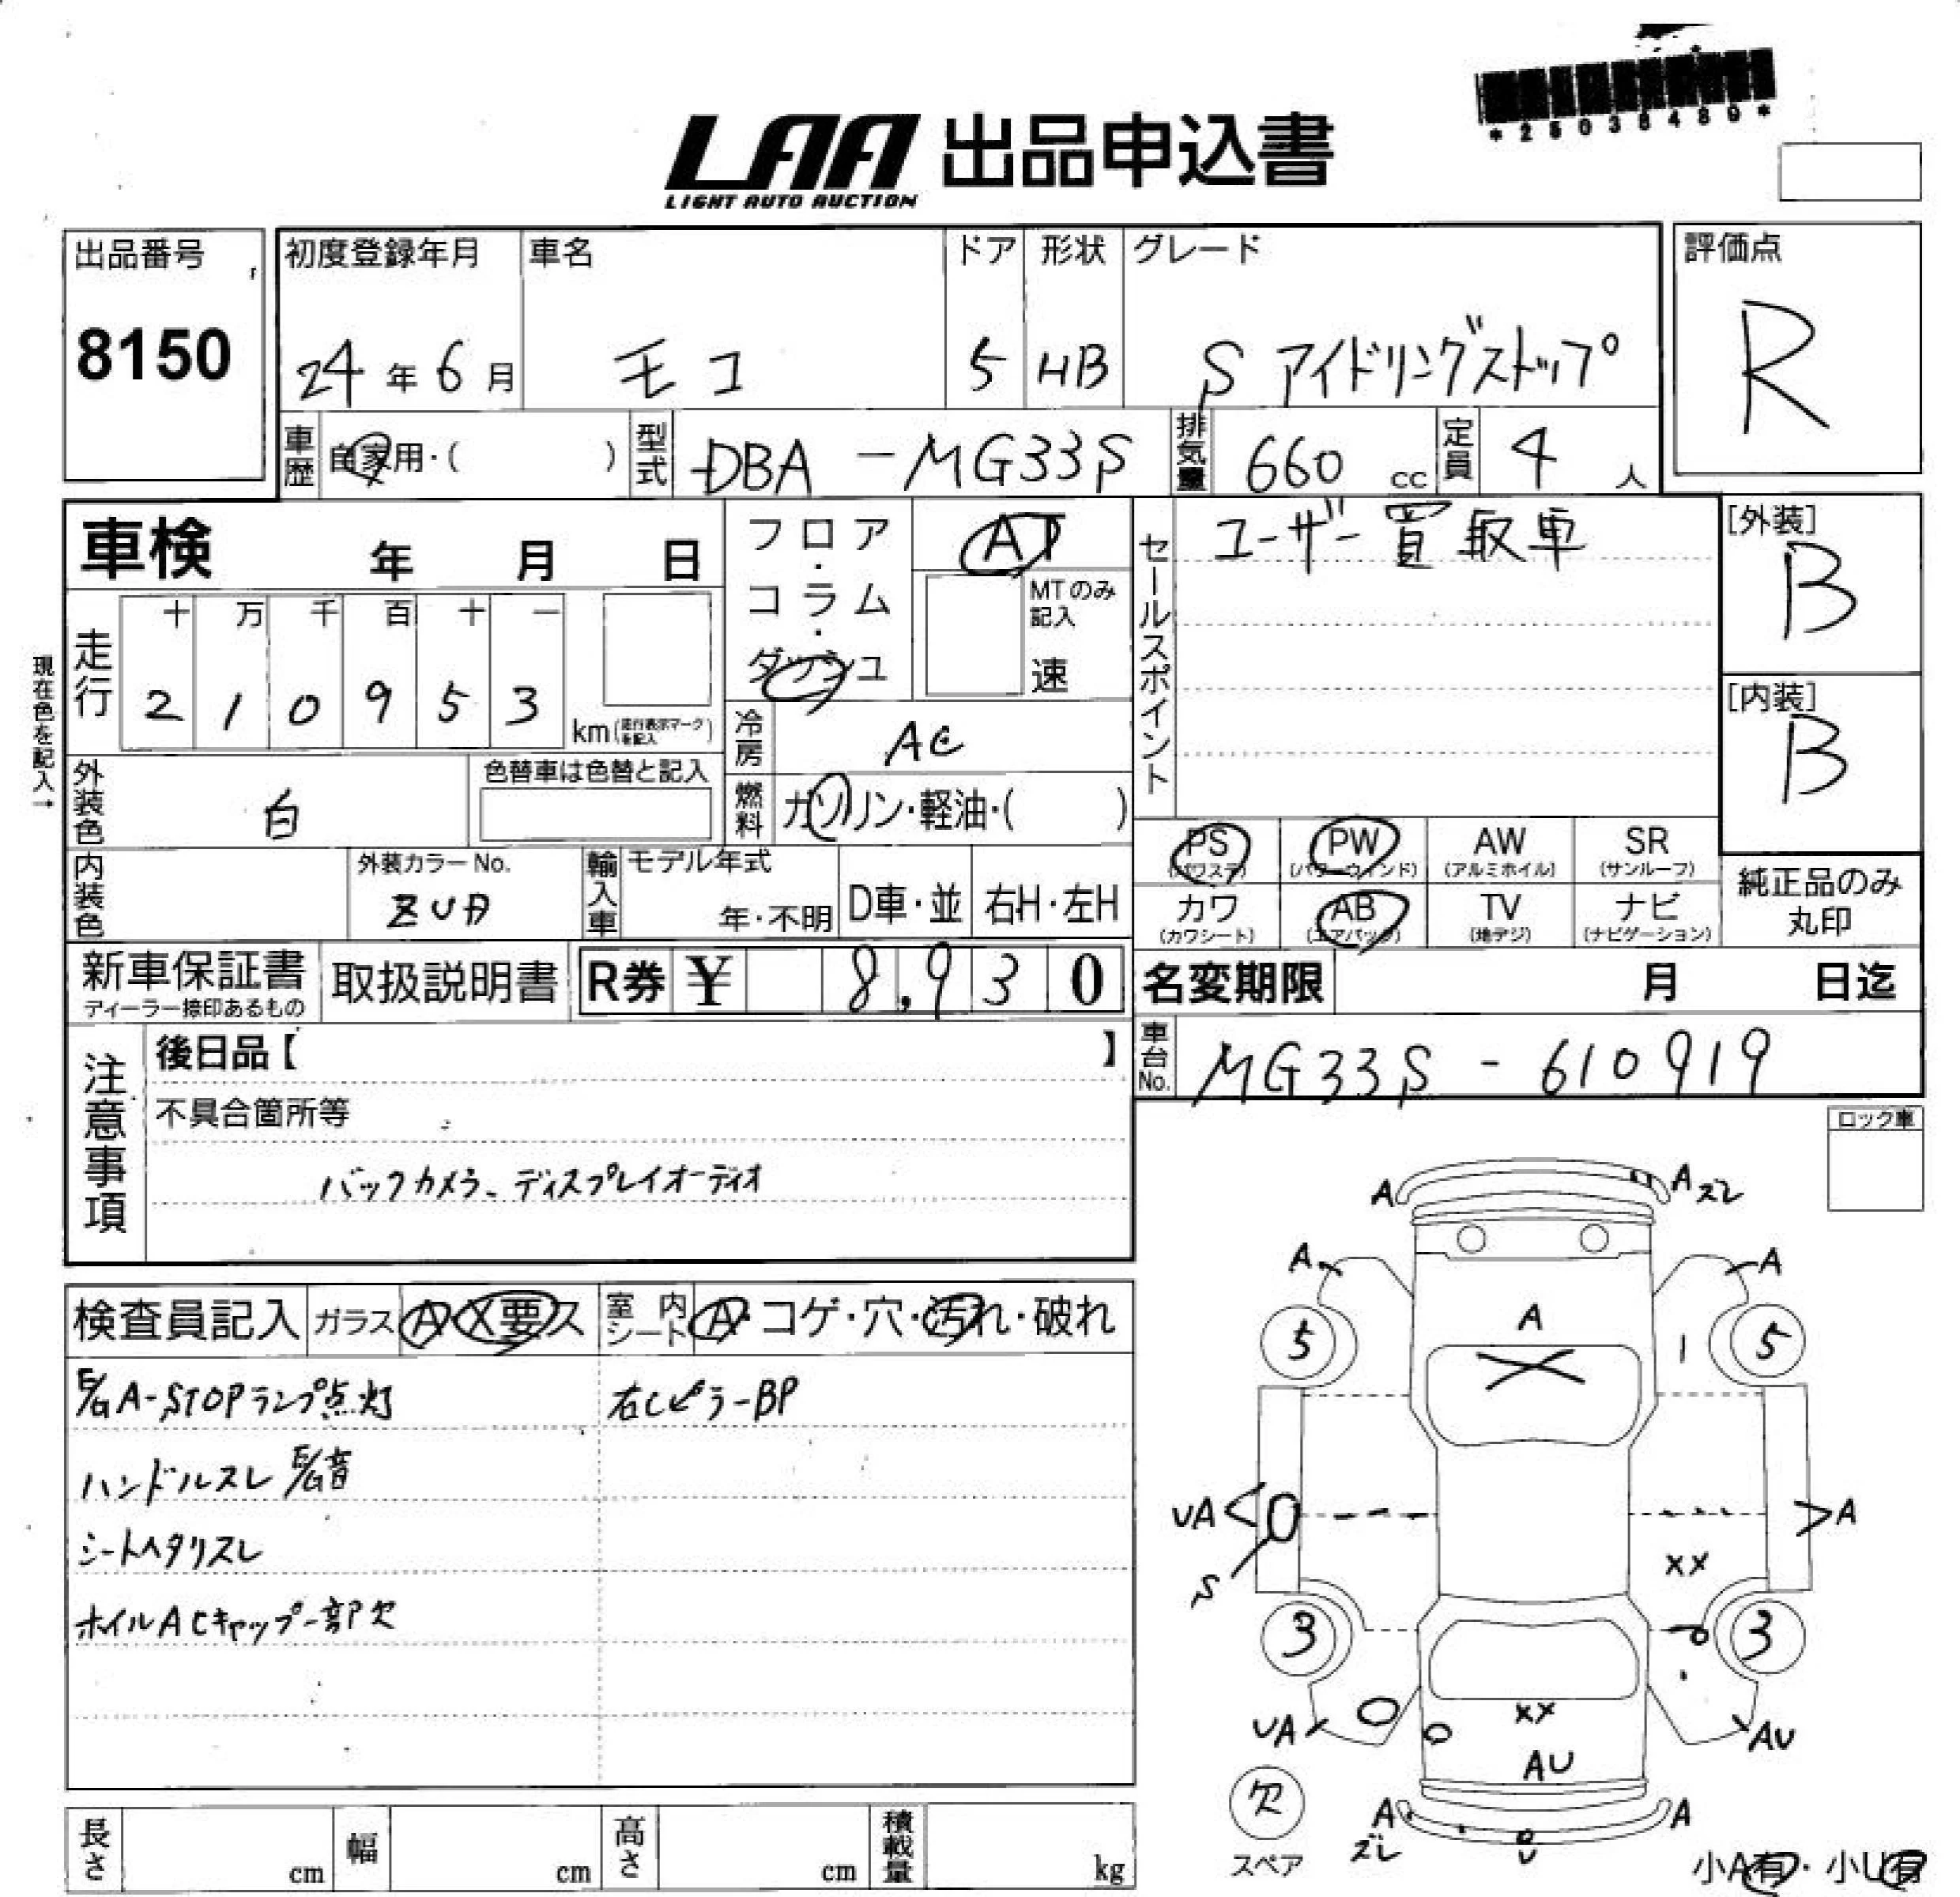 *25036489*
LAA 出品申込書
LIGHT AUTO AUCTION
出品番号
8150
初度登録年月
24年6月
車名
モコ
ドア
5
形状
HB
グレード
S アイドリングストップ
評価点
R
車歴 自家用・( )
型式 DBA-MG33S
排気量 660 cc
定員 4人
車検 年 月 日
フロア・コラム・ダッシュ
AT
MTのみ記入
速
セールスポイント
ユーザー買取車
[外装]
B
[内装]
B
現在色を記入→
走行
十 万 千 百 十 一
2 1 0 9 5 3
km(走行表示マークを記入)
冷房 AC
燃料 ガソリン・軽油・( )
外装色 白
色替車は色替と記入
内装色
外装カラーNo.
ZUA
輸入車
モデル年式
年・不明
D車・並
右H・左H
PS (パワステ)
PW (パワーウインド)
AW (アルミホイル)
SR (サンルーフ)
カワ (カワシート)
AB (エアバック)
TV (地デジ)
ナビ (ナビゲーション)
純正品のみ
丸印
新車保証書
ディーラー捺印あるもの
取扱説明書
R券 ¥ 8,930
名変期限 月 日迄
車台No. MG33S-610919
注意事項
後日品【 】
不具合箇所等
バックカメラ、ディスプレイオーディオ
ロック車
検査員記入
ガラス A X要ス
室内シート A・コゲ・穴・汚れ・破れ
E/G A-STOPランプ点灯
右Cピラ-BP
ハンドルスレ E/G音
シートヘタリスレ
ホイルACキャップ一部欠
A
Aズレ
A
A
5
A
X
5
UA
S
A
XX
3
3
UA
XX
AU
AU
欠
スペア
A
ズレ
U
A
小A有・小U有
長さ cm
幅 cm
高さ cm
積載量 kg